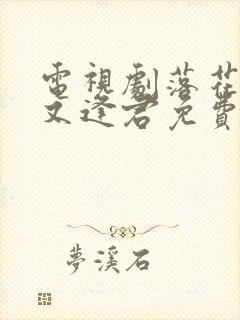 電視劇落花
又逢君免費
夢溪石